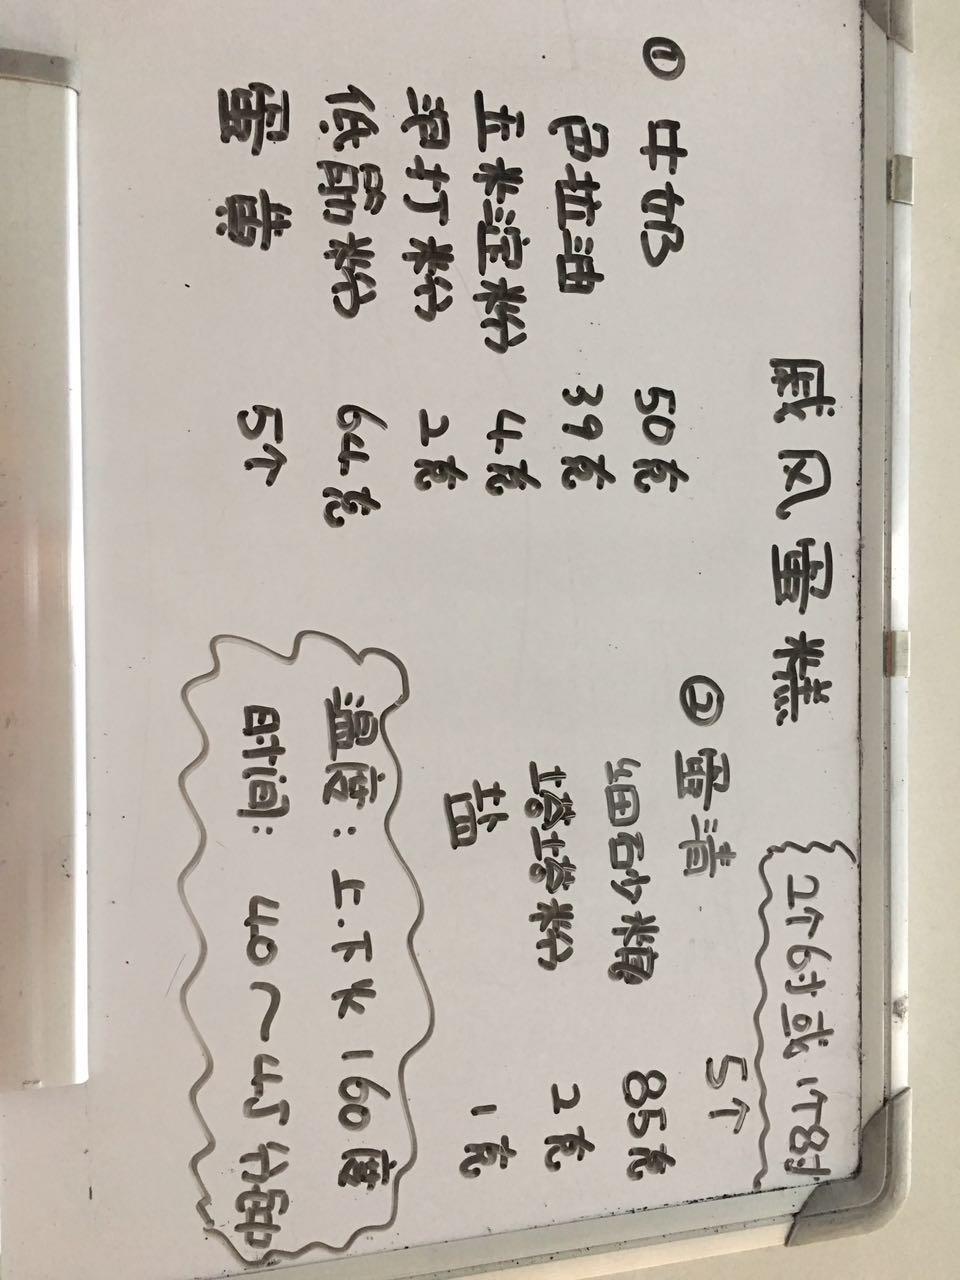 戚风蛋糕
2个6寸或1个8寸
① 牛奶 50克
色拉油 39克
玉米淀粉 4克
泡打粉 2克
低筋粉 64克
蛋黄 5个
② 蛋清 5个
细砂糖 85克
塔塔粉 2克
盐 1克
温度：上.下火160度
时间：40～45分钟